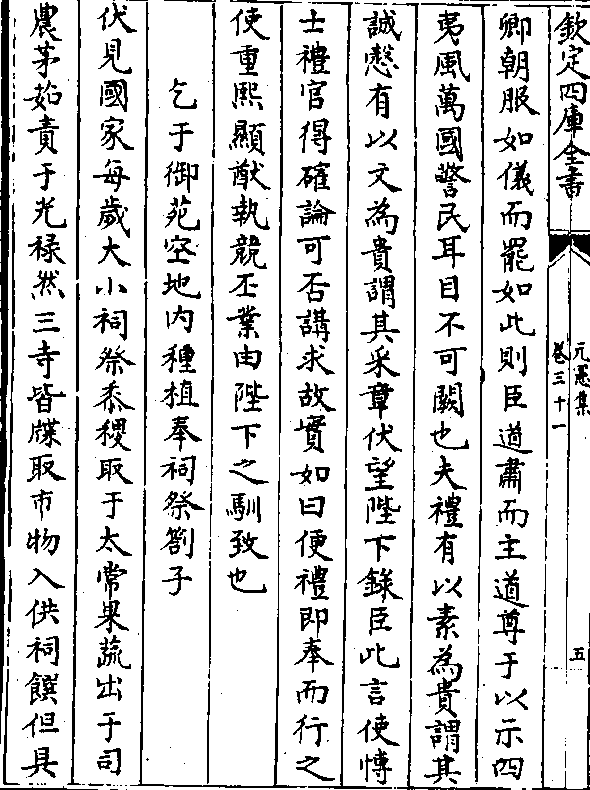 欽定四庫全書
元憲集
卷三十一
五
卿朝服如儀而罷如此則臣道肅而主道尊于以示四
夷風萬國警民耳目不可闕也夫禮有以素為貴謂其
誠慤有以文為貴謂其采章伏望陛下錄臣此言使博
士禮官得確論可否講求故實如曰便禮即奉而行之
使重熙顯猷執競丕業由陛下之馴致也
乞于御苑空地內種植奉祠祭劄子
伏見國家每歲大小祠祭黍稷取于太常果蔬出于司
農茅茹責于光禄然三寺皆牒取市物入供祠饌但具